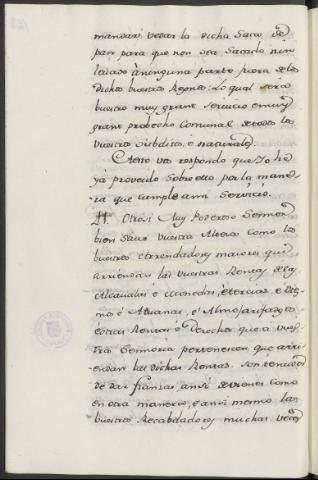 mandari vedar la dicha Saca de
pan para que non sea Sacado nin
levado à ninguna parte fuera de los
dichos vuestros Regnos: Lo qual será
vuestro muy grant servicio é muy
grant probecho comunal de todos los
vuestros Subditos, e naturales.
A esto vos respondo que Yo he
yá proveido sobre esto por la mane-
ra que cumple a mi Servicio.
Otrosi Muy Poderoso Sennor
bien Save vuestra Alteza como los
vuestros Arrendadores maiores que
arriendan las vuestras Rentas de las
Alcavalas é monedas, é tercias, é Diez-
mo é Aduanas, é Almojarifadgos
é otras Rentas é Derechos que a vues-
tra Sennoria pertenescen que arri-
endan las dichas Rentas. Son tenudos
de dar fianzas, ansi de vienes como
en otra manera, é ansi mesmo los
vuestros Recabdadores muchas veces